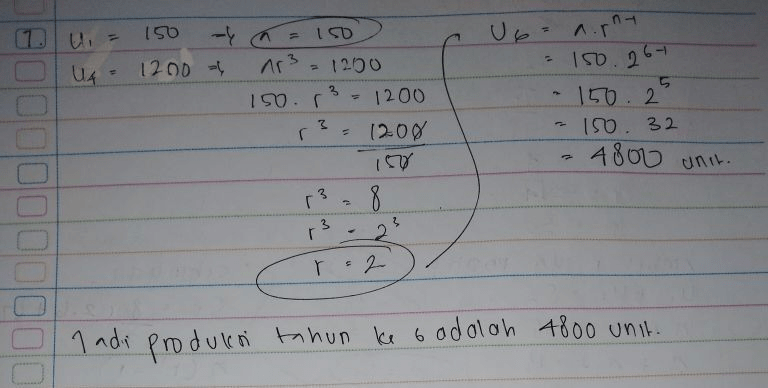 7. U₁ = 150 → a = 150
U₄ = 1200 → ar³ = 1200
150. r³ = 1200
r³ = 1200
150
r³ = 8
r³ = 2³
r = 2
U₆ = a.rⁿ⁻¹
= 150. 2⁶⁻¹
= 150. 2⁵
= 150. 32
= 4800 unit.
Jadi produksi tahun ke 6 adalah 4800 unit.